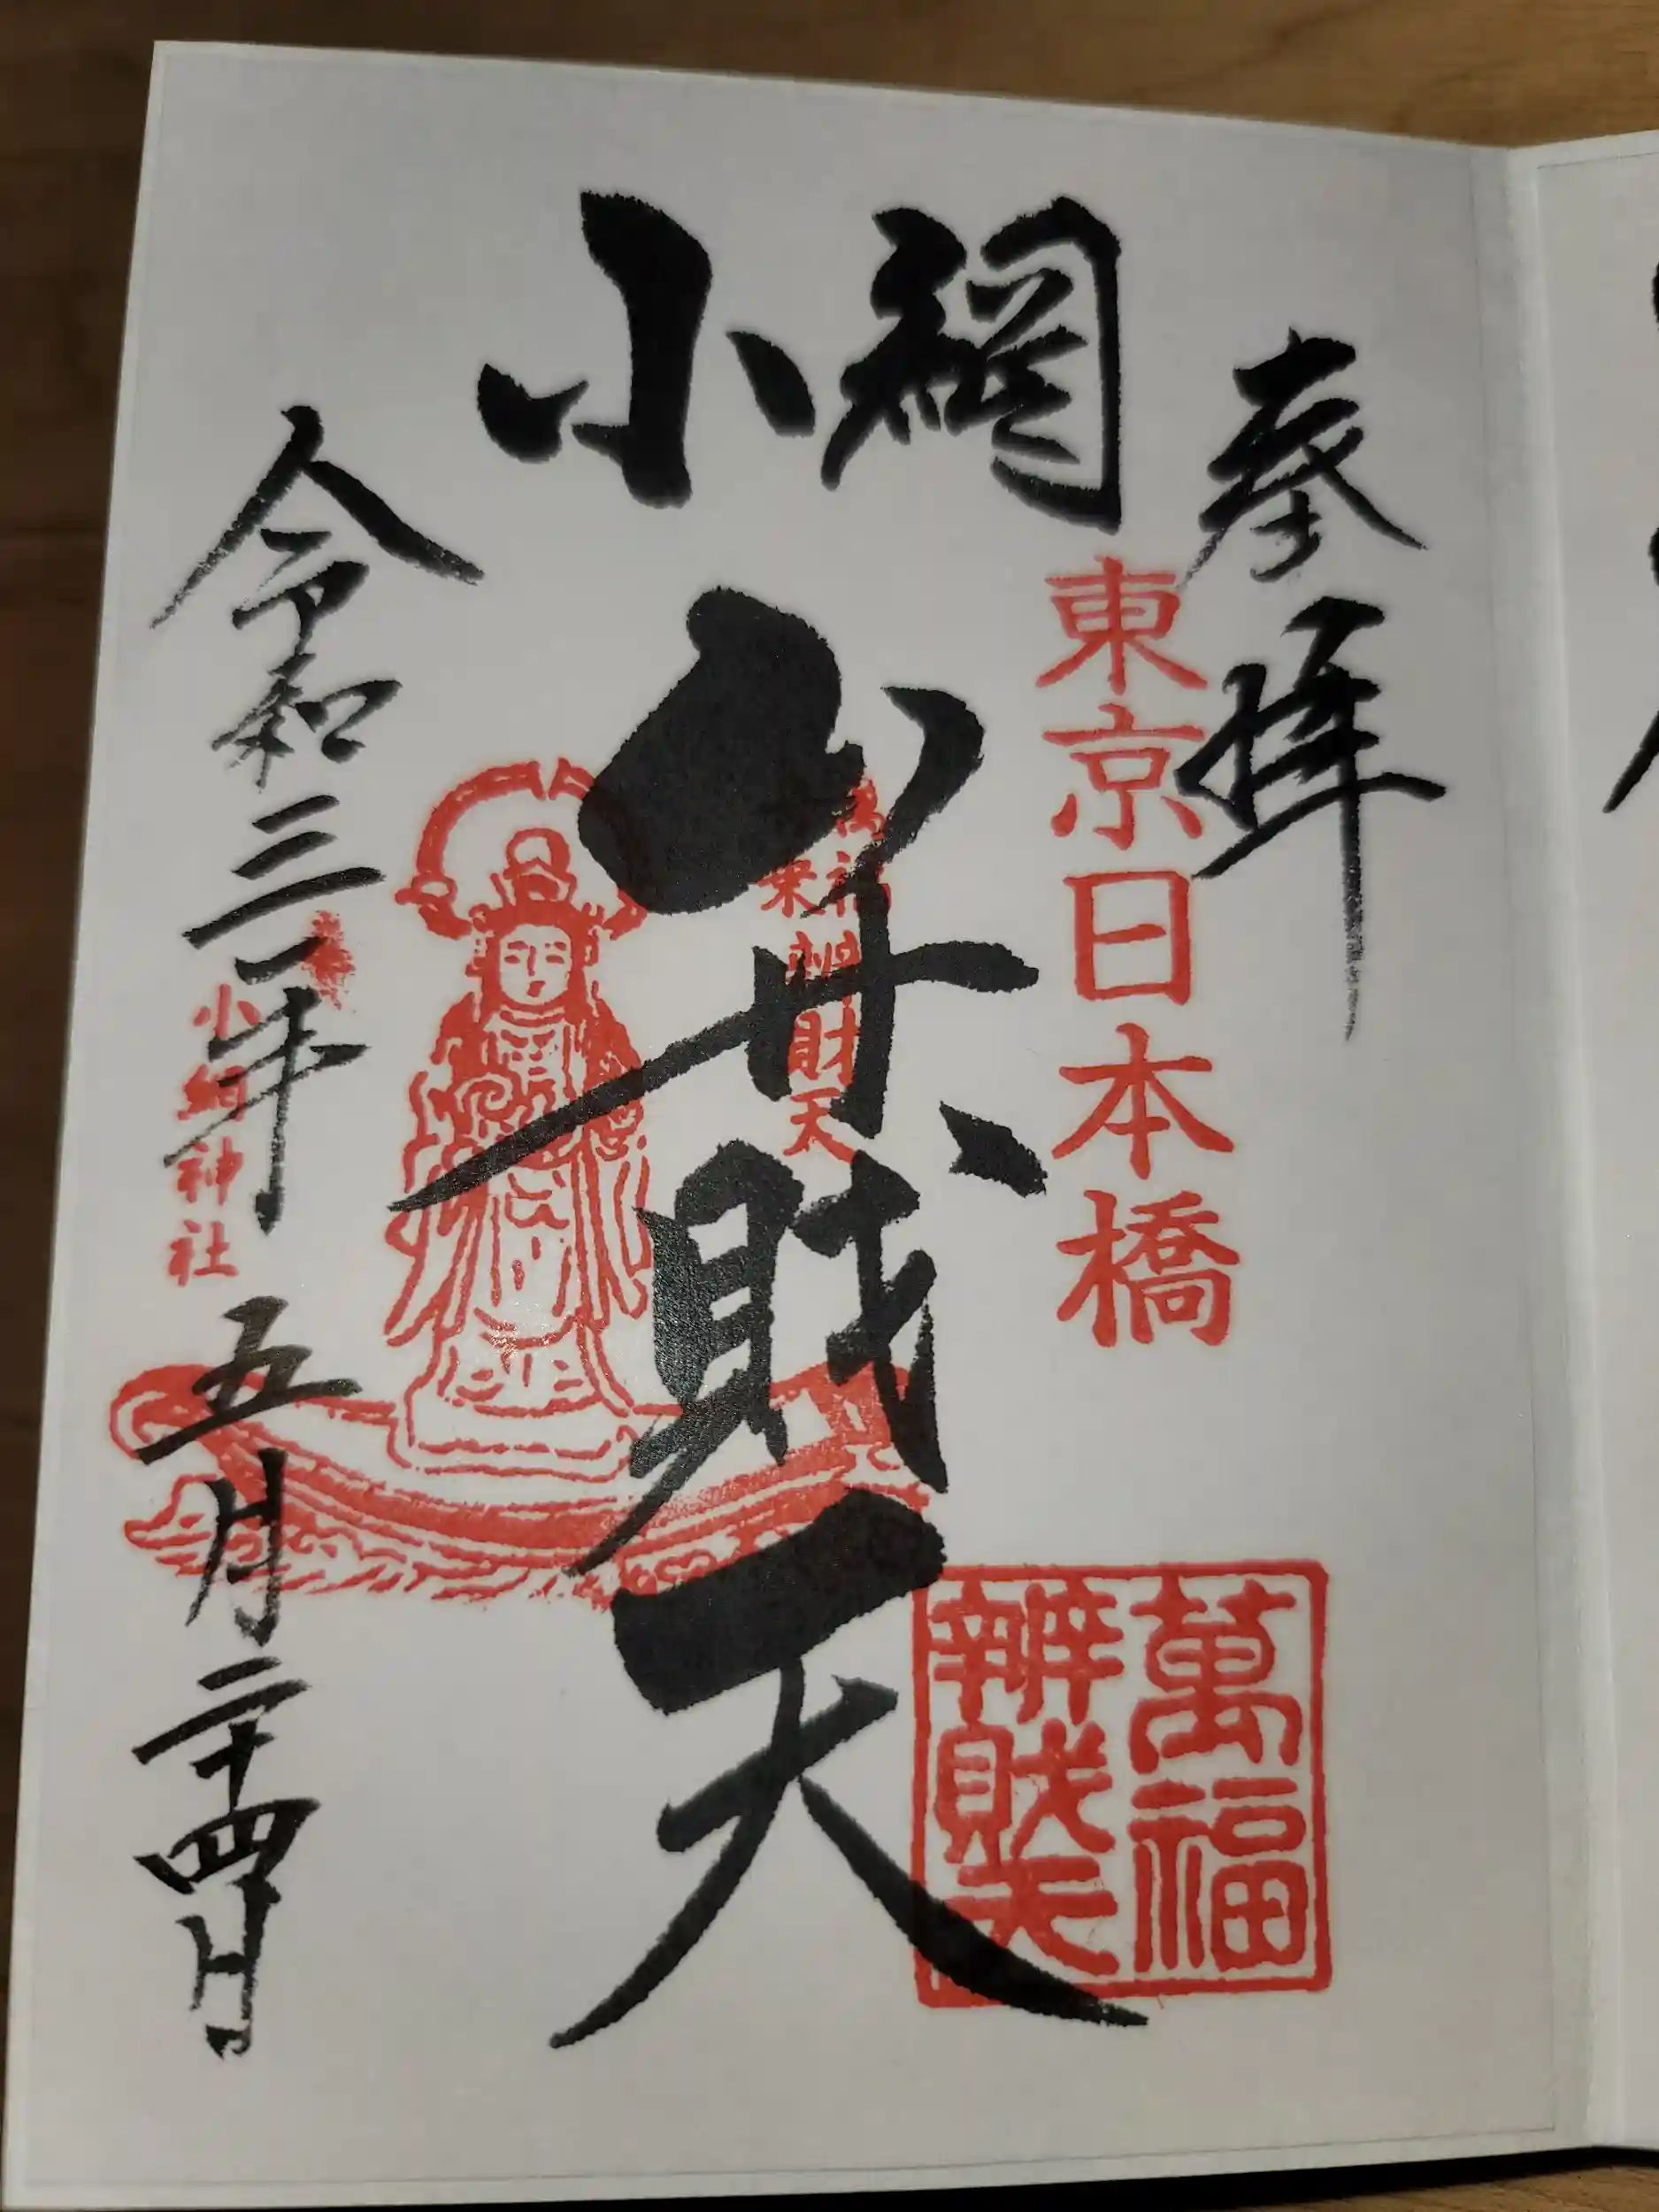 奉拝
東京日本橋
網
小
弁財天
萬福
舟乗
辨財天
萬福
辨財天
令和三年五月二十四日
小網神社